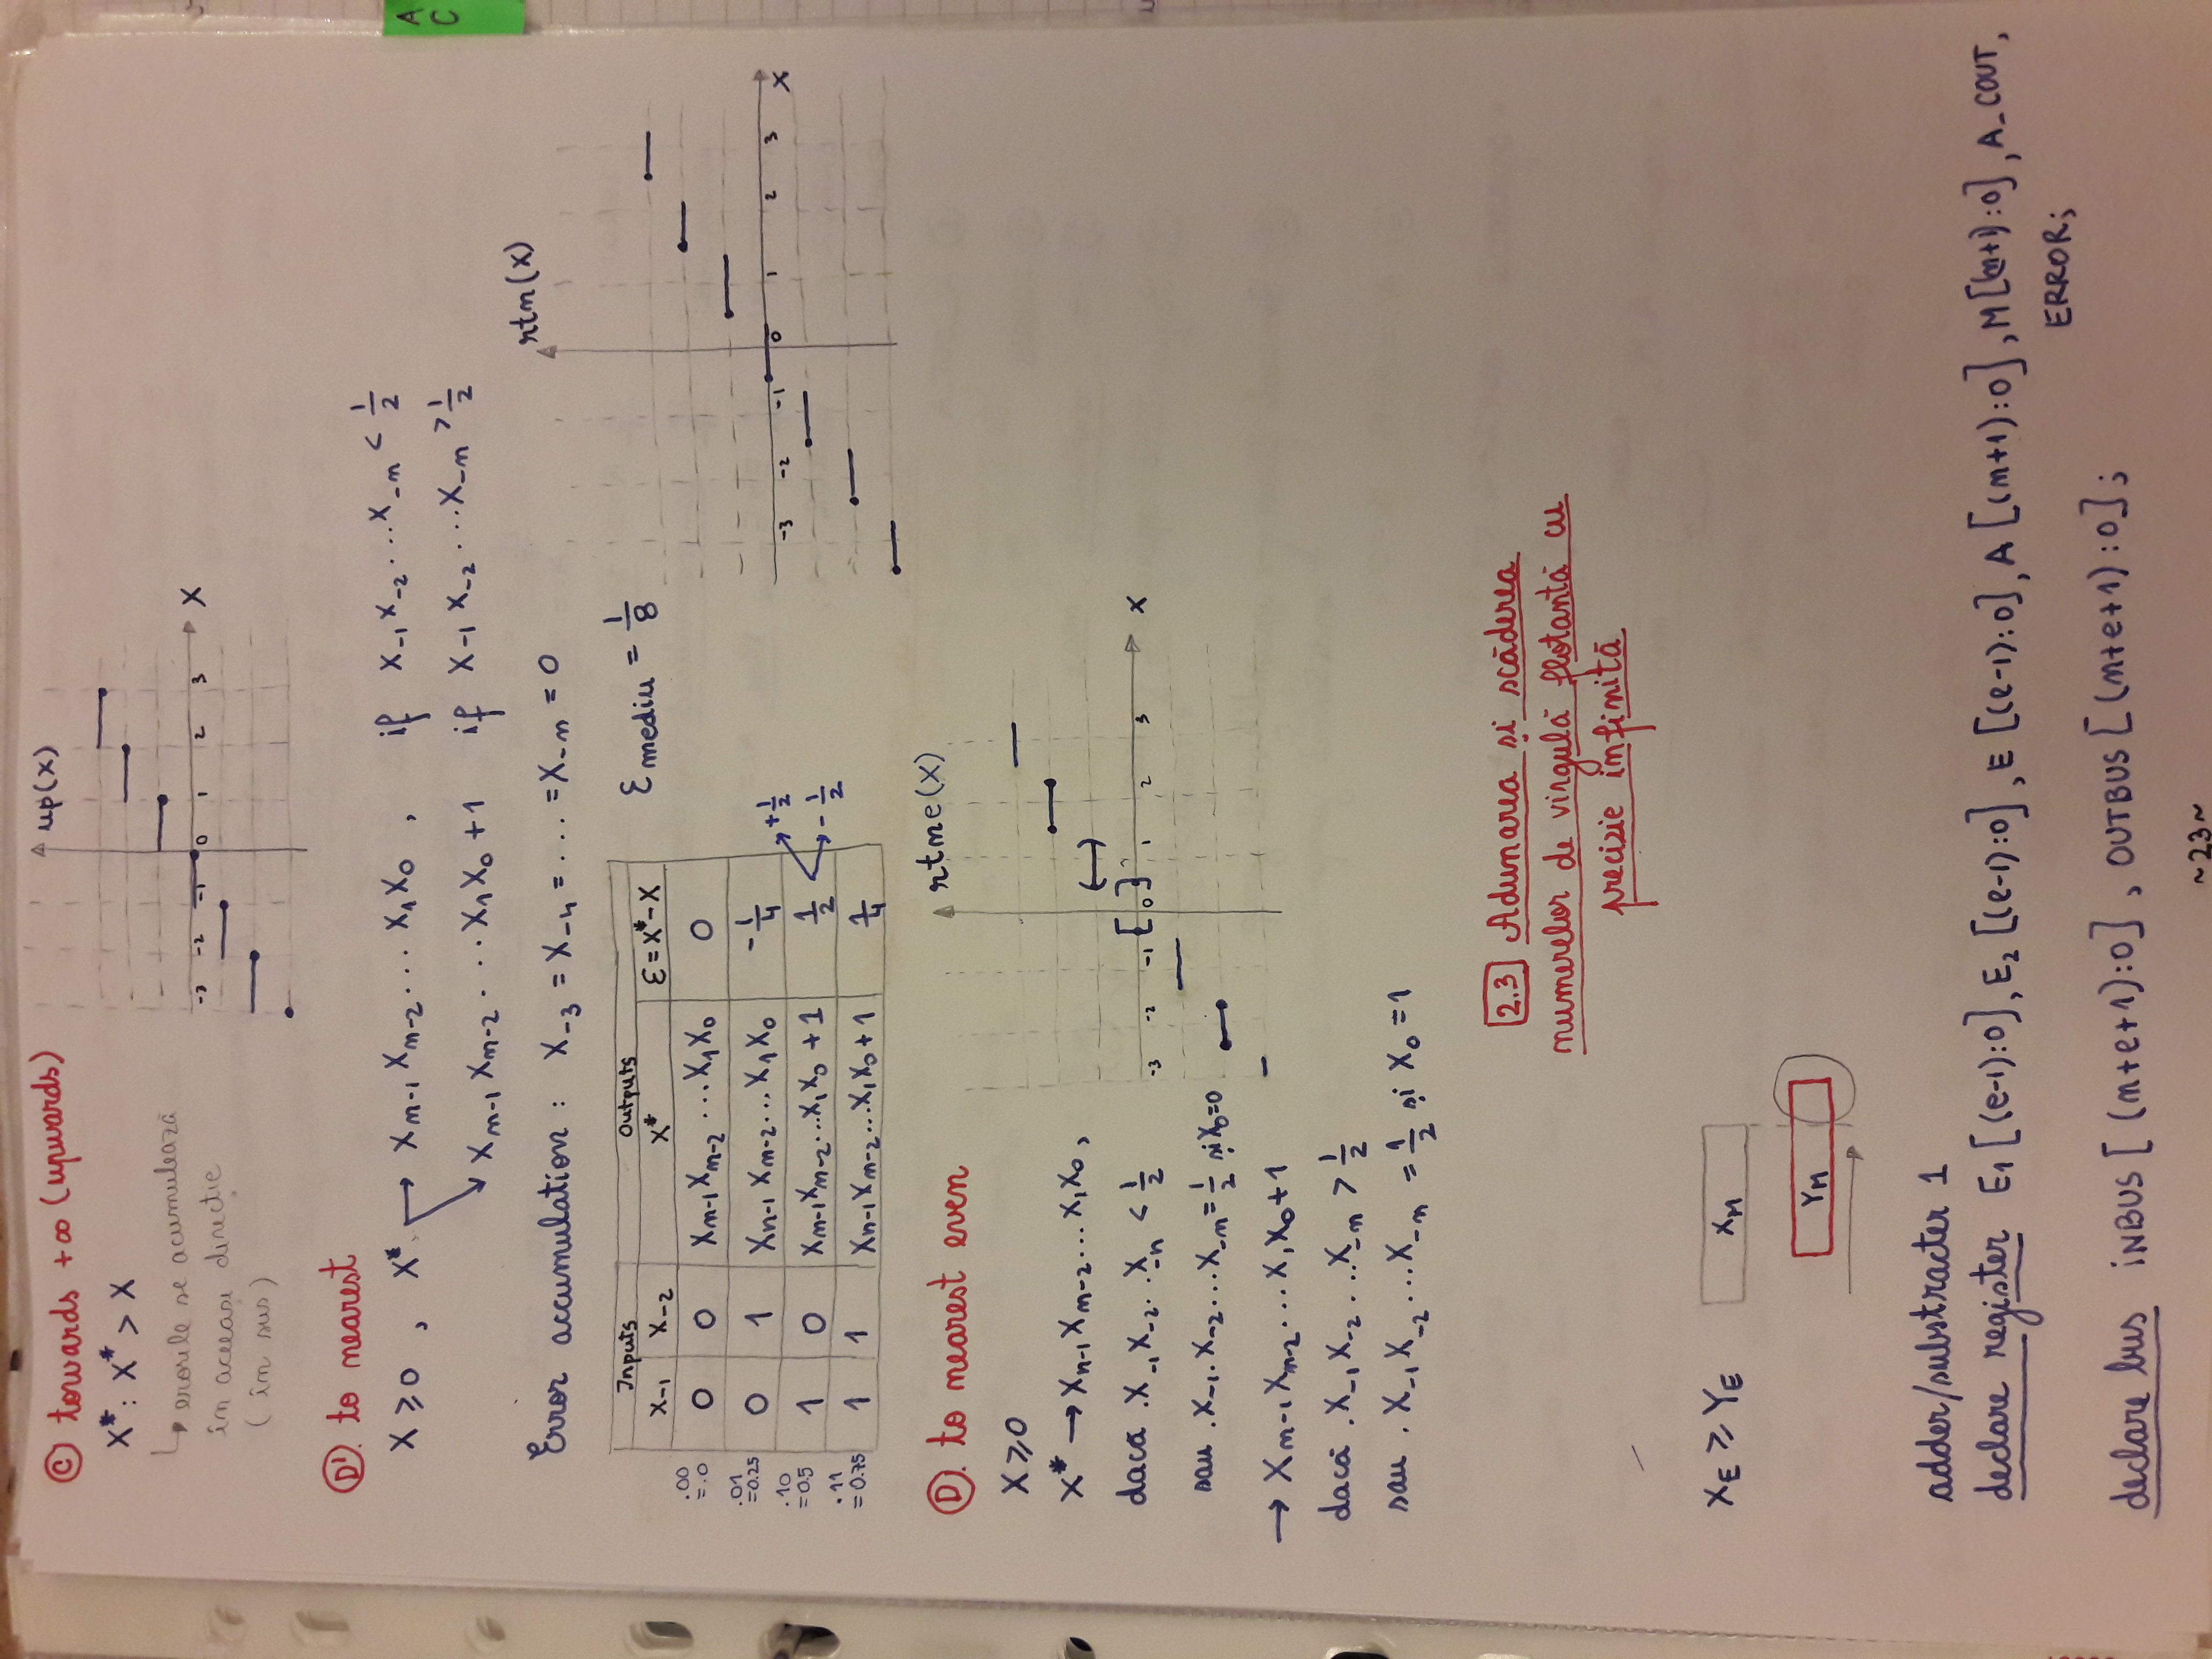 C towards +∞ (upwards)
X*: X* > X
↳ erorile se acumulează
în aceeași direcție
(în sus)
up(x)
-3 -2 -1 0 1 2 3 X
D'. to nearest
X ⩾ 0 , X* → Xn-1 Xn-2 ... X1 X0 , if X-1 X-2 ... X-n < 1/2
↘ Xn-1 Xn-2 ... X1 X0 + 1 if X-1 X-2 ... X-n > 1/2
A
C
Error accumulation : X-3 = X-4 = .... = X-n = 0
Inputs Outputs
X-1 X-2 X* Ɛ = X* - X
.00 =.0 0 0 Xn-1 Xn-2 ... X1 X0 0
.01 =0.25 0 1 Xn-1 Xn-2 ... X1 X0 -1/4
.10 =0.5 1 0 Xn-1 Xn-2 ... X1 X0 + 1 1/2 +1/2 -1/2
.11 =0.75 1 1 Xn-1 Xn-2 ... X1 X0 + 1 1/4
Ɛ mediu = 1/8
rtn(X)
-3 -2 -1 0 1 2 3 X
D. to nearest even
X ⩾ 0
X* → Xn-1 Xn-2 ... X1 X0 ,
dacă .X-1 X-2 .. X-n < 1/2
sau .X-1. X-2 ... X-n = 1/2 și X0=0
→ Xn-1 Xn-2 ... X1 X0 + 1
dacă .X-1 X-2 ... X-n > 1/2
sau . X-1 X-2 ... X-n = 1/2 și X0 = 1
rtne(X)
-3 -2 -1 0 1 2 3 X
2.3 Adunarea și scăderea
numerelor de virgulă flotantă cu
precizie infinită
XE ⩾ YE
XM
YM
adder/substracter 1
declare register E1 [(e-1):0], E2 [(e-1):0], E [(e-1):0], A [(m+1):0], M [(m+1):0], A_COUT,
ERROR;
declare bus INBUS [ (m+e+1):0], OUTBUS [(m+e+1):0];
~23~